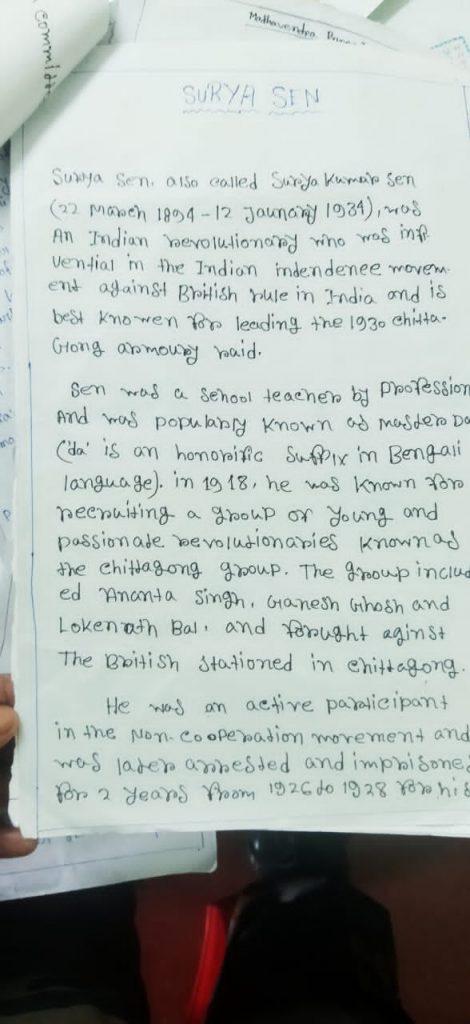 committ
Madhavendra
SURYA SEN
Surya Sen. also called Surya Kumar Sen
(22 March 1894 - 12 Jaunary 1934), was
An Indian revolutionary who was infl
uential in the Indian indendenee movem-
ent against British rule in India and is
best knowen for leading the 1930 chitta-
Gong armoury raid.
Sen was a school teacher by profession
And was popularly known as master Da
('da' is an honorific suffix in Bengali
language). in 1918, he was known for
recruiting a group of young and
passionate revolutionaries known as
the chittagong group. The group includ
ed Ananta Singh, Ganesh Ghosh and
Lokenath Bal. and fought aginst
The British stationed in chittagong.
He was an active participant
in the Non-cooperation movement and
was later arrested and imprisoned
for 2 years from 1926 to 1928 for his